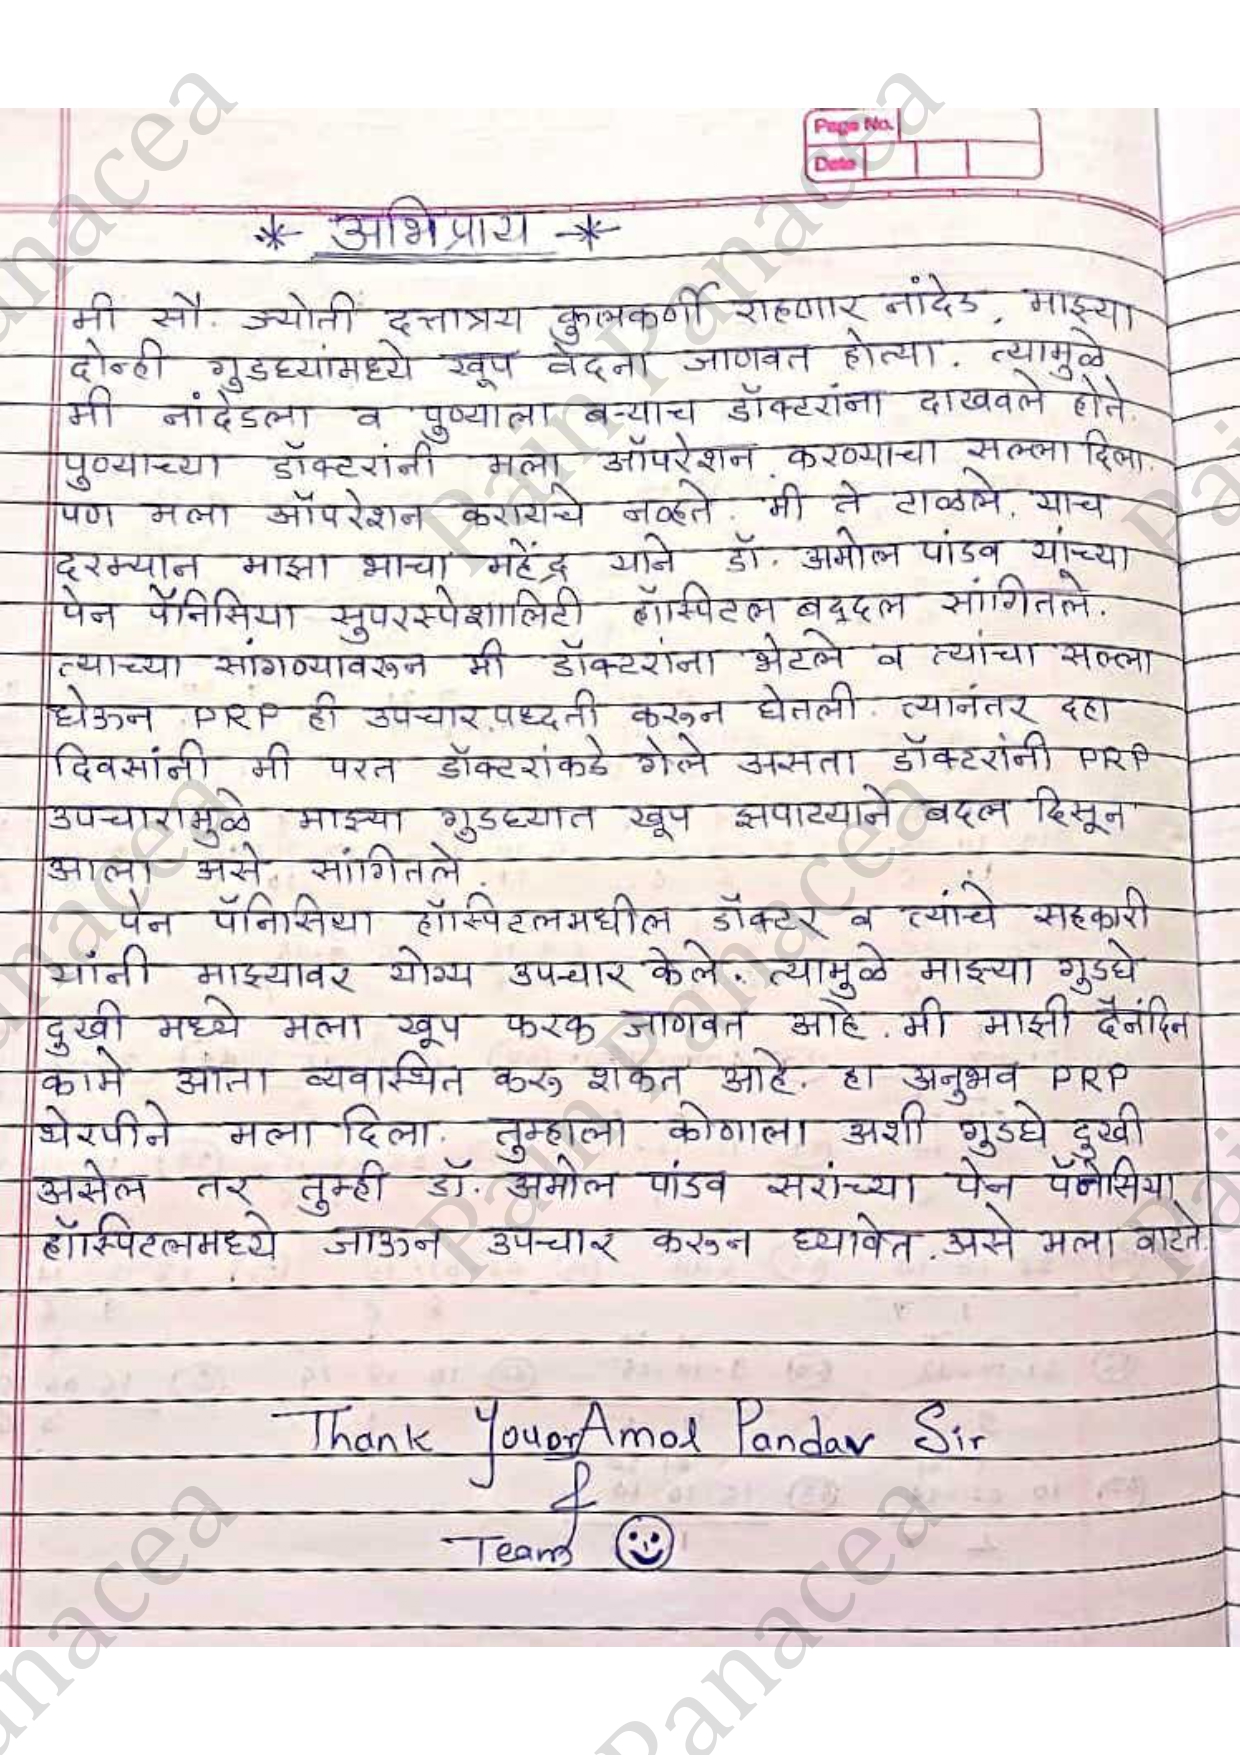 Page No.
Date
* अभिप्राय *
मी सौ. ज्योती दत्तात्रय कुलकर्णी राहणार नांदेड, माझ्या
दोन्ही गुडघ्यांमध्ये खूप वेदना जाणवत होत्या. त्यामुळे
मी नांदेडला व पुण्याला बऱ्याच डॉक्टरांना दाखवले होते.
पुण्याच्या डॉक्टरांनी मला ऑपरेशन करण्याचा सल्ला दिला.
पण मला ऑपरेशन करायचे नव्हते. मी ते टाळले. याच
दरम्यान माझा भाचा महेंद्र याने डॉ. अमोल पांडव यांच्या
पेन पॅनिसिया सुपरस्पेशालिटी हॉस्पिटल बद्दल सांगितले.
त्याच्या सांगण्यावरून मी डॉक्टरांना भेटले व त्यांचा सल्ला
घेऊन PRP ही उपचार पध्दती करून घेतली. त्यानंतर दहा
दिवसांनी मी परत डॉक्टरांकडे गेले असता डॉक्टरांनी PRP
उपचारामुळे माझ्या गुडघ्यात खूप झपाट्याने बदल दिसून
आला असे सांगितले.
पेन पॅनिसिया हॉस्पिटलमधील डॉक्टर व त्यांचे सहकारी
यांनी माझ्यावर योग्य उपचार केले. त्यामुळे माझ्या गुडघे
दुखी मध्ये मला खूप फरक जाणवत आहे. मी माझी दैनंदिन
कामे आता व्यवस्थित करू शकत आहे. हा अनुभव PRP
थेरपीने मला दिला. तुम्हाला कोणाला अशी गुडघे दुखी
असेल तर तुम्ही डॉ. अमोल पांडव सरांच्या पेन पॅनेसिया
हॉस्पिटलमध्ये जाऊन उपचार करून घ्यावेत असे मला वाटते.
Thank You Dr Amol Pandav Sir
&
Team
Pain Panacea